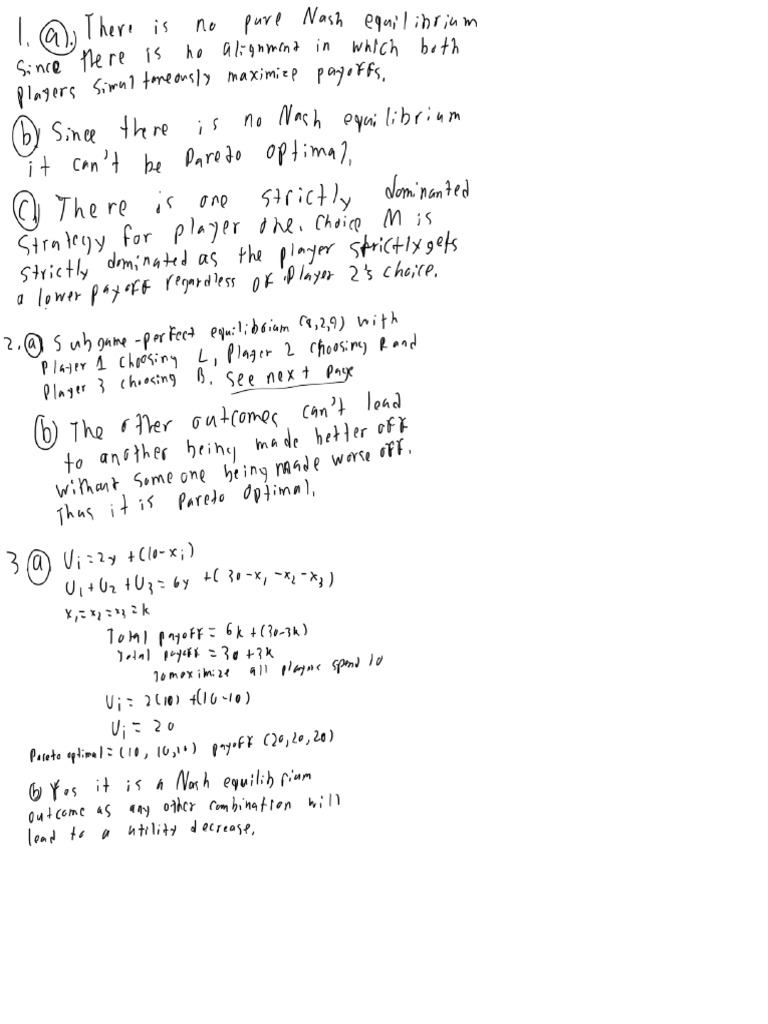 1. (a). There is no pure Nash equilibrium
since there is no alignment in which both
players simultaneously maximize payoffs.
(b) Since there is no Nash equilibrium
it can't be Pareto optimal.
(c) There is one strictly dominanted
strategy for player one. Choice M is
strictly dominated as the player strictly gets
a lower payoff regardless of Player 2's choice.
2. (a) Subgame-perfect equilibrium (9,2,9) with
Player 1 choosing L, Player 2 choosing R and
Player 3 choosing B. See next page
(b) The other outcomes can't lead
to another being made better off
without someone being made worse off.
Thus it is Pareto Optimal.
3 (a) Ui = 2y + (10 - xi)
U1 + U2 + U3 = 6y + (30 - x1 - x2 - x3)
x1 = x2 = x3 = k
Total payoff = 6k + (30 - 3k)
Total payoff = 30 + 3k
To maximize all players spend 10
Ui = 2(10) + (10 - 10)
Ui = 20
Pareto optimal = (10, 10, 10) payoff (20, 20, 20)
(b) Yes it is a Nash equilibrium
outcome as any other combination will
lead to a utility decrease.